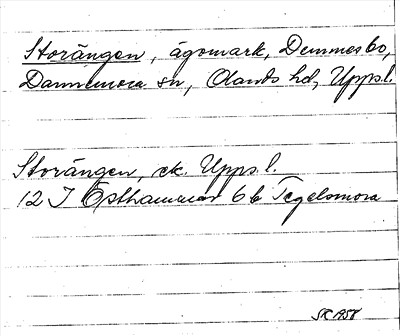 Storängen, ägomark, Demmesbo,
Dannemora sn, Olands hd, Upps.l.
Storängen, ek. Upps l.
12 I Östhammar 6 b Tegelsmora
SK 1958